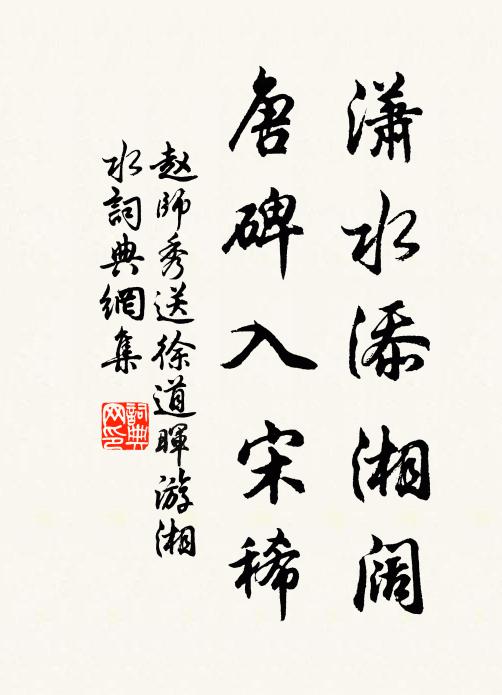 瀟水添湘阔
唐碑入宋稀
赵師秀送徐道暉游湘
水詞典網集
詞典
网印